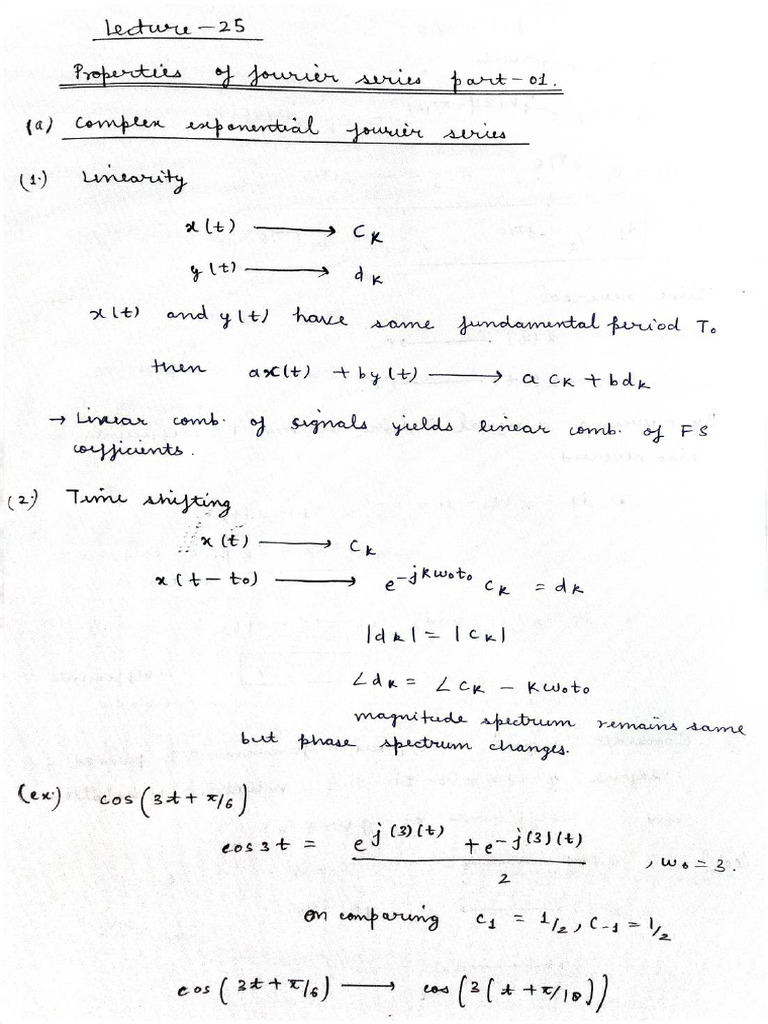 Lecture-25
Properties of fourier series part-01.
(a) complex exponential fourier series
(1.) Linearity
x(t) ⟶ CK
y(t) ⟶ dK
x(t) and y(t) have same fundamental period To
then ax(t) + by(t) ⟶ a CK + bdK
→ Linear comb. of signals yields linear comb. of FS
coefficients.
(2.) Time shifting
x(t) ⟶ CK
x(t-to) ⟶ e^-jKωoto CK = dK
|dK| = |CK|
∠dK = ∠CK - Kωoto
magnitude spectrum remains same
but phase spectrum changes.
(ex.) cos(3t + π/6)
cos3t = (e^j(3)(t) + e^-j(3)(t))/2 , ωo = 3.
on comparing C1 = 1/2, C-1 = 1/2
cos(3t + π/6) ⟶ cos(3(t + π/18))